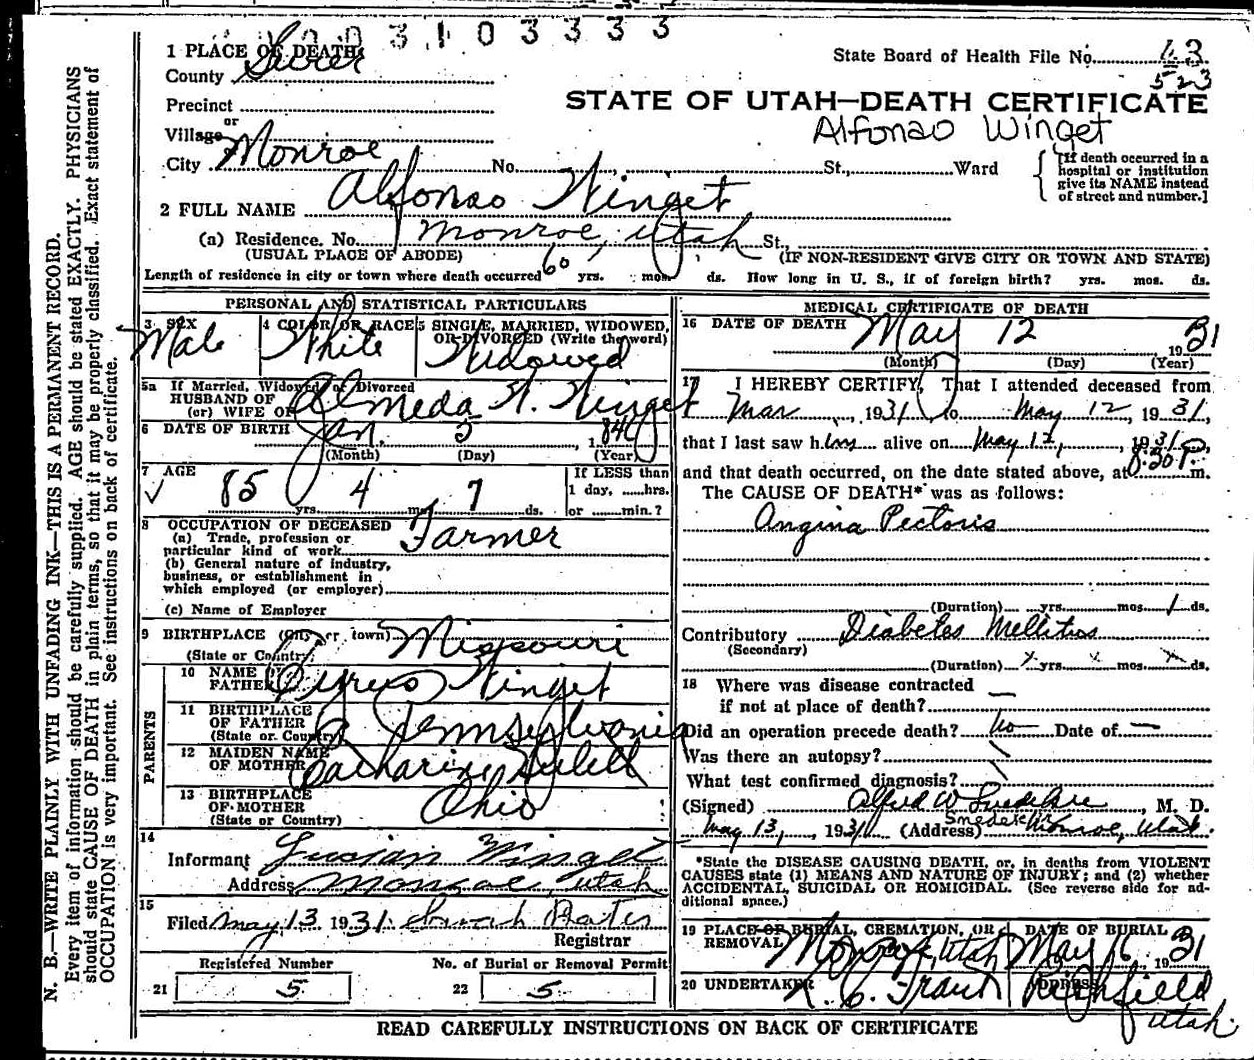 3 1 0 3 3 3 3
1 PLACE OF DEATH
County Sevier
State Board of Health File No. 43
523
Precinct
or
Village
STATE OF UTAH—DEATH CERTIFICATE
Alfonso Winget
City Monroe No. St., Ward
[If death occurred in a
hospital or institution
give its NAME instead
of street and number.]
2 FULL NAME Alfonso Winget
(a) Residence. No. Monroe, Utah St.,
(USUAL PLACE OF ABODE) (IF NON-RESIDENT GIVE CITY OR TOWN AND STATE)
Length of residence in city or town where death occurred 60 yrs. mos. ds. How long in U. S., if of foreign birth? yrs. mos. ds.
PERSONAL AND STATISTICAL PARTICULARS
3 SEX 4 COLOR OR RACE 5 SINGLE, MARRIED, WIDOWED,
OR DIVORCED (Write the word)
Male White Widowed
5a If Married, Widowed or Divorced
HUSBAND OF
(or) WIFE OF Almeda W. Winget
6 DATE OF BIRTH Jan. 5, 1846
(Month) (Day) (Year)
7 AGE
85 yrs. 4 mos. 7 ds.
If LESS than
1 day, ......hrs.
or ......min.?
8 OCCUPATION OF DECEASED
(a) Trade, profession or
particular kind of work Farmer
(b) General nature of industry,
business, or establishment in
which employed (or employer)
(c) Name of Employer
9 BIRTHPLACE (City or town) Missouri
(State or Country)
PARENTS
10 NAME OF
FATHER Cyrus Winget
11 BIRTHPLACE
OF FATHER
(State or Country) Pennsylvania
12 MAIDEN NAME
OF MOTHER Catharine
13 BIRTHPLACE
OF MOTHER
(State or Country) Ohio
14
Informant Lucian Winget
Address Monroe, Utah
15
Filed May 13 1931. Bates
Registrar
Registered Number No. of Burial or Removal Permit
21 5 22 5
MEDICAL CERTIFICATE OF DEATH
16 DATE OF DEATH May 12 1931
(Month) (Day) (Year)
17 I HEREBY CERTIFY, That I attended deceased from
Mar, 1931 to May 12 1931,
that I last saw him alive on May 12, 1931,
and that death occurred, on the date stated above, at 8:30 P. m.
The CAUSE OF DEATH* was as follows:
Angina Pectoris
(Duration) yrs. mos. 1 ds.
Contributory Diabetes Mellitus
(Secondary)
(Duration) x yrs. x mos. x ds.
18 Where was disease contracted
if not at place of death? —
Did an operation precede death? No Date of —
Was there an autopsy?
What test confirmed diagnosis?
(Signed) Alfred W Snedeker, M. D.
Snedeker
May 13, 1931 (Address) Monroe, Utah.
*State the DISEASE CAUSING DEATH, or, in deaths from VIOLENT
CAUSES state (1) MEANS AND NATURE OF INJURY; and (2) whether
ACCIDENTAL, SUICIDAL OR HOMICIDAL. (See reverse side for ad-
ditional space.)
19 PLACE OF BURIAL, CREMATION, OR DATE OF BURIAL
REMOVAL Monroe, Utah May 16 1931
20 UNDERTAKER ADDRESS
Richfield
Utah.
READ CAREFULLY INSTRUCTIONS ON BACK OF CERTIFICATE
N. B.—WRITE PLAINLY WITH UNFADING INK—THIS IS A PERMANENT RECORD.
Every item of information should be carefully supplied. AGE should be stated EXACTLY. PHYSICIANS
should state CAUSE OF DEATH in plain terms, so that it may be properly classified. Exact statement of
OCCUPATION is very important. See instructions on back of certificate.